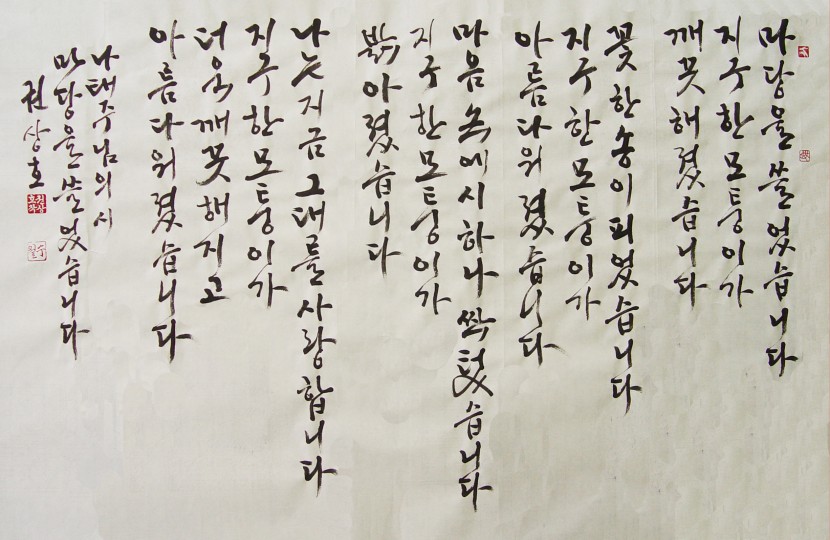 마당을 쓸었습니다
지구 한 모퉁이가
깨끗해졌습니다
꽃 한 송이 피었습니다
지구 한 모퉁이가
아름다워졌습니다
마음 속에 시 하나 싹텄습니다
지구 한 모퉁이가
밝아졌습니다
나는 지금 그대를 사랑합니다
지구 한 모퉁이가
더욱 깨끗해지고
아름다워졌습니다
나태주님의 시
마당을 쓸었습니다
권상호